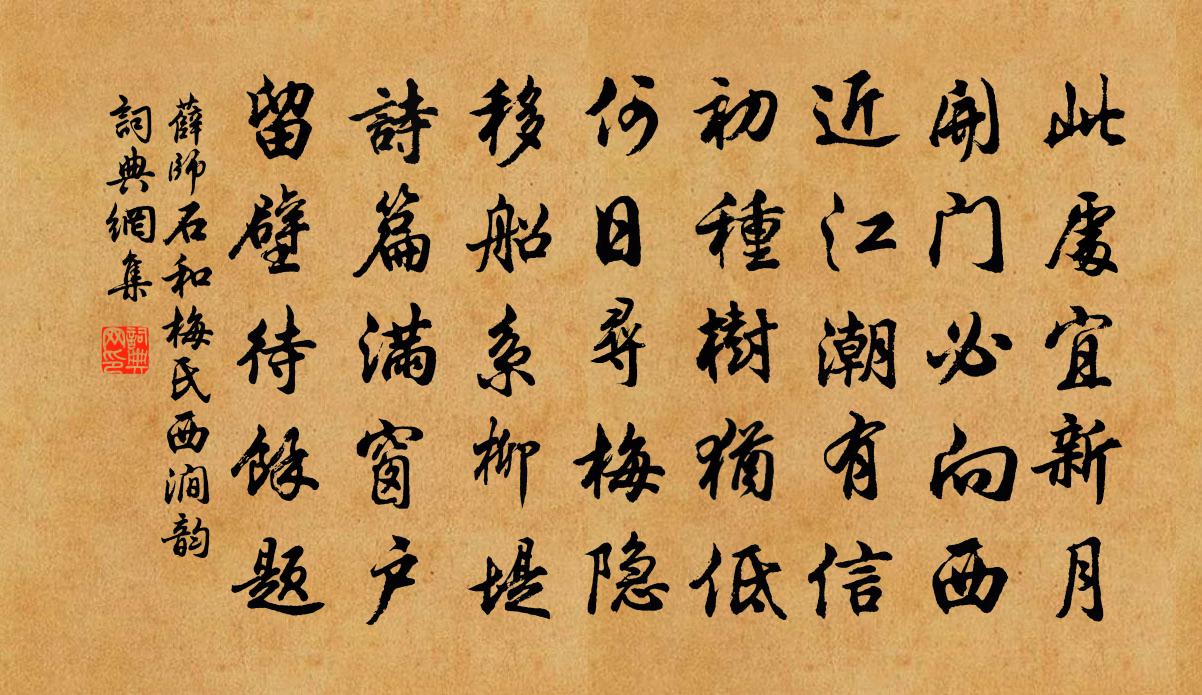 此處宜新月
開门必向西
近江潮有信
初種樹猶低
何日尋梅隐
移船系柳堤
詩篇滿窗户
留壁待餘题
薛師石和梅氏西澗韵
詞典網集
詞典网印